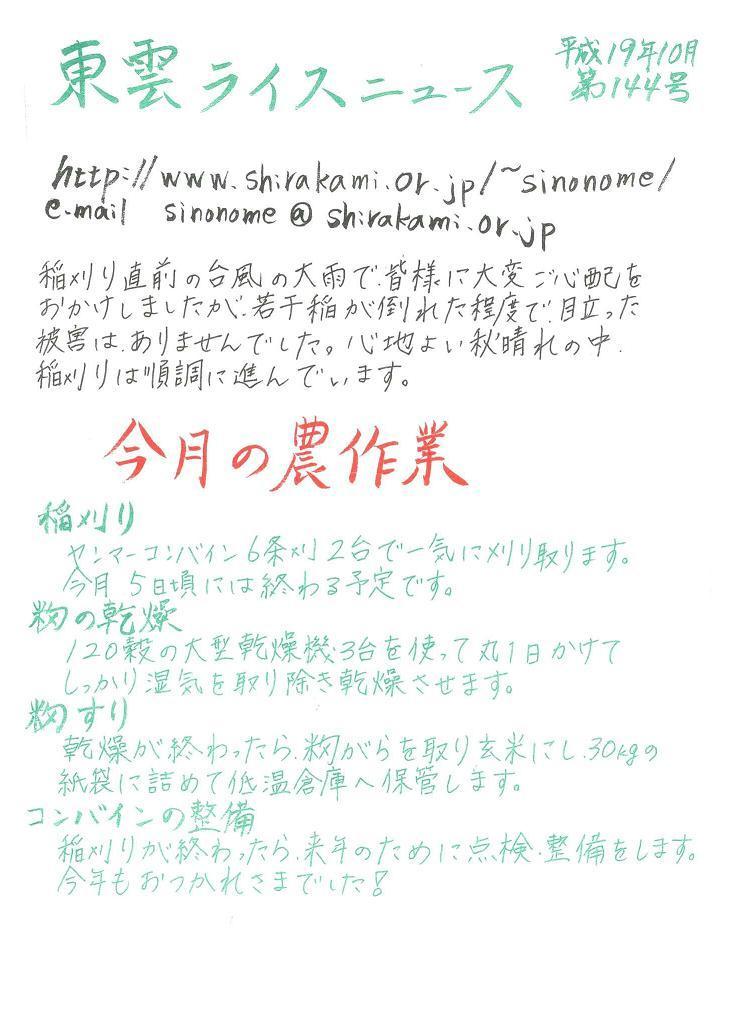 東雲ライスニュース
平成19年10月
第144号
http://www.shirakami.or.jp/~sinonome/
e.mail sinonome@shirakami.or.jp
稲刈り直前の台風の大雨で、皆様に大変ご心配を
おかけしましたが、若干稲が倒れた程度で、目立った
被害は、ありませんでした。心地よい秋晴れの中、
稲刈りは順調に進んでいます。
今月の農作業
稲刈り
ヤンマーコンバイン6条刈2台で一気にメリリ取ります。
今月5日頃には終わる予定です。
籾の乾燥
120穀の大型乾燥機3台を使って丸1日かけて
しっかり湿気を取り除き乾燥させます。
籾すり
乾燥が終わったら、籾がらを取り玄米にし、30kgの
紙袋に詰めて低温倉庫へ保管します。
コンバインの整備
稲刈りが終わったら、来年のために点検・整備をします。
今年もおつかれさまでした!